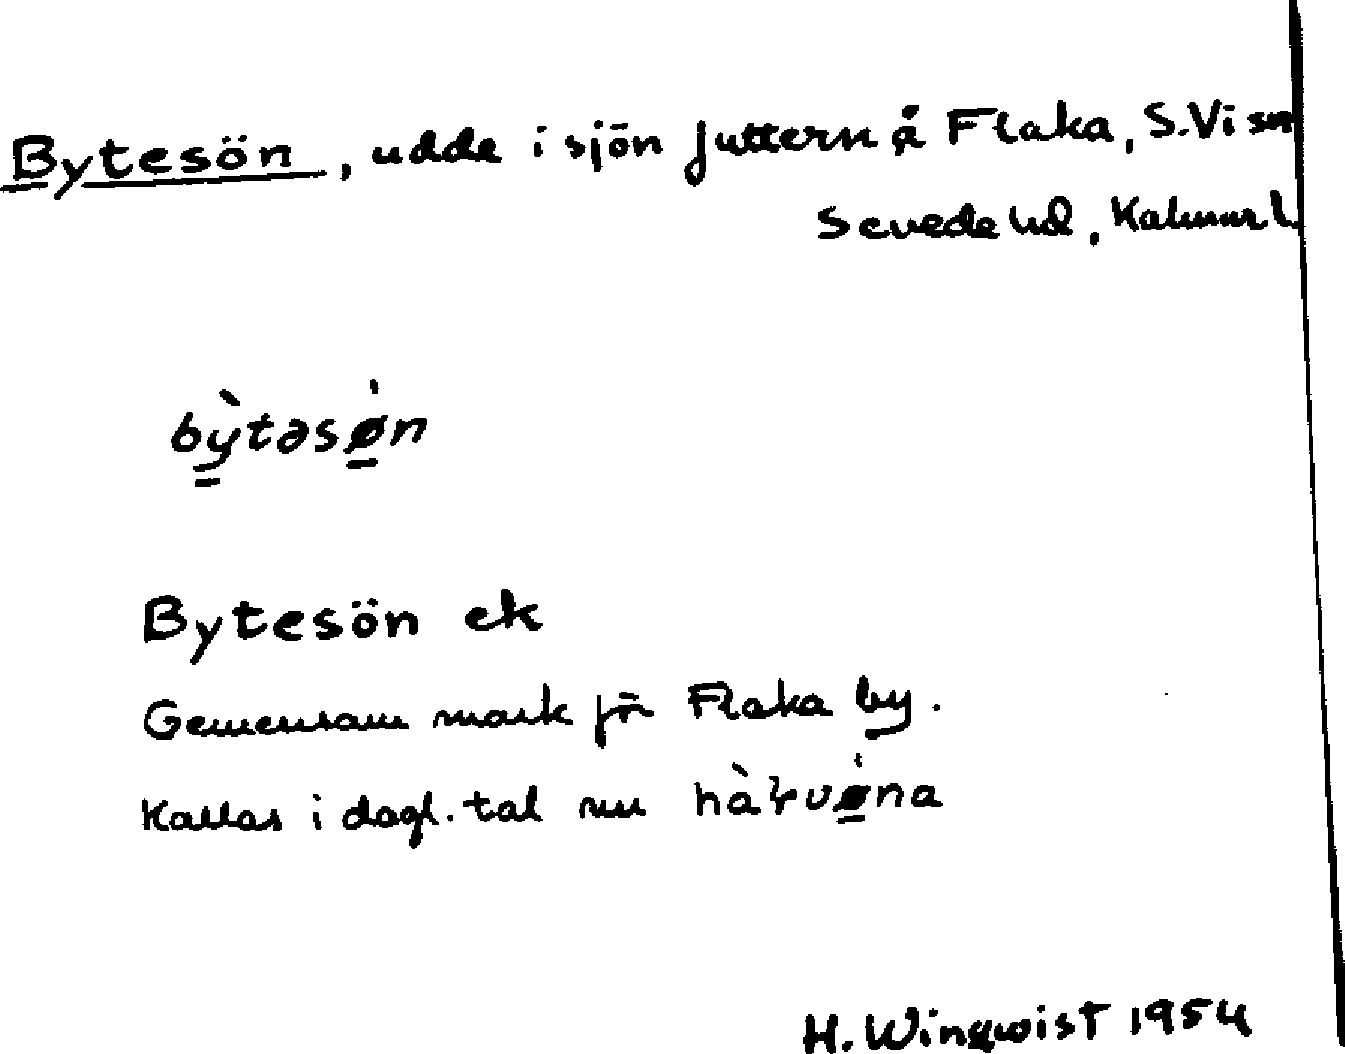 Bytesön, udde i sjön Juttern å Flaka, S.Vi
Sevede hd, Kalmar l.
bỳ̠təsø̠̍n
Bytesön ek
Gemensam mark för Flaka by.
Kallas i dagl. tal nu
H. Winqwist 1954